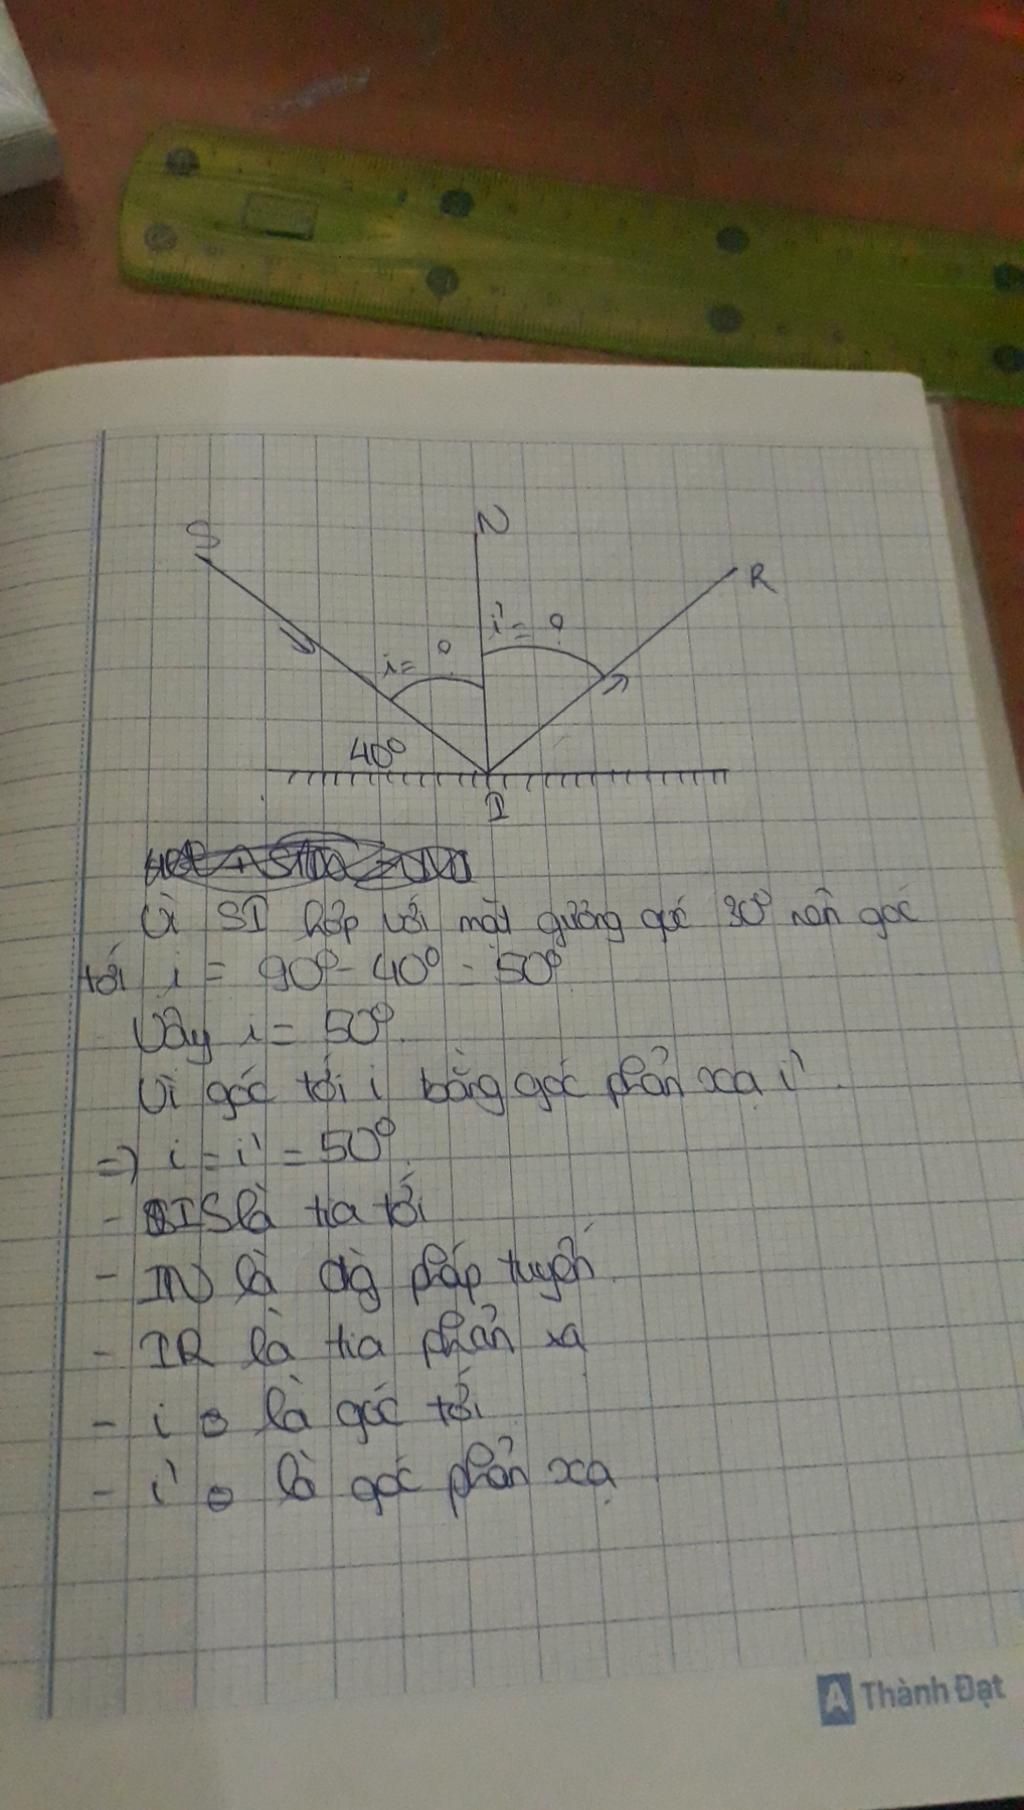 S
N
R
i = ?
i' = ?
40°
I
Vì SI hợp với mặt gương góc 30° nên góc
tới i = 90° - 40° = 50°
Vậy i = 50°.
Vì góc tới i bằng góc phản xạ i'.
=> i = i' = 50°.
- IS là tia tới
- IN là đg pháp tuyến.
- IR là tia phản xạ
- i là góc tới
- i' là góc phản xạ
A Thành Đạt